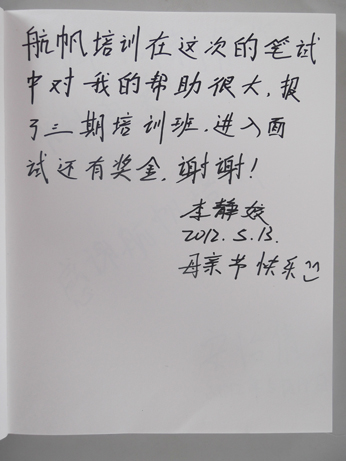 航帆培训在这次的笔试
中对我的帮助很大,报
了三期培训班.进入面
试还有奖金.谢谢!
李静姣
2012.5.13.
母亲节快乐